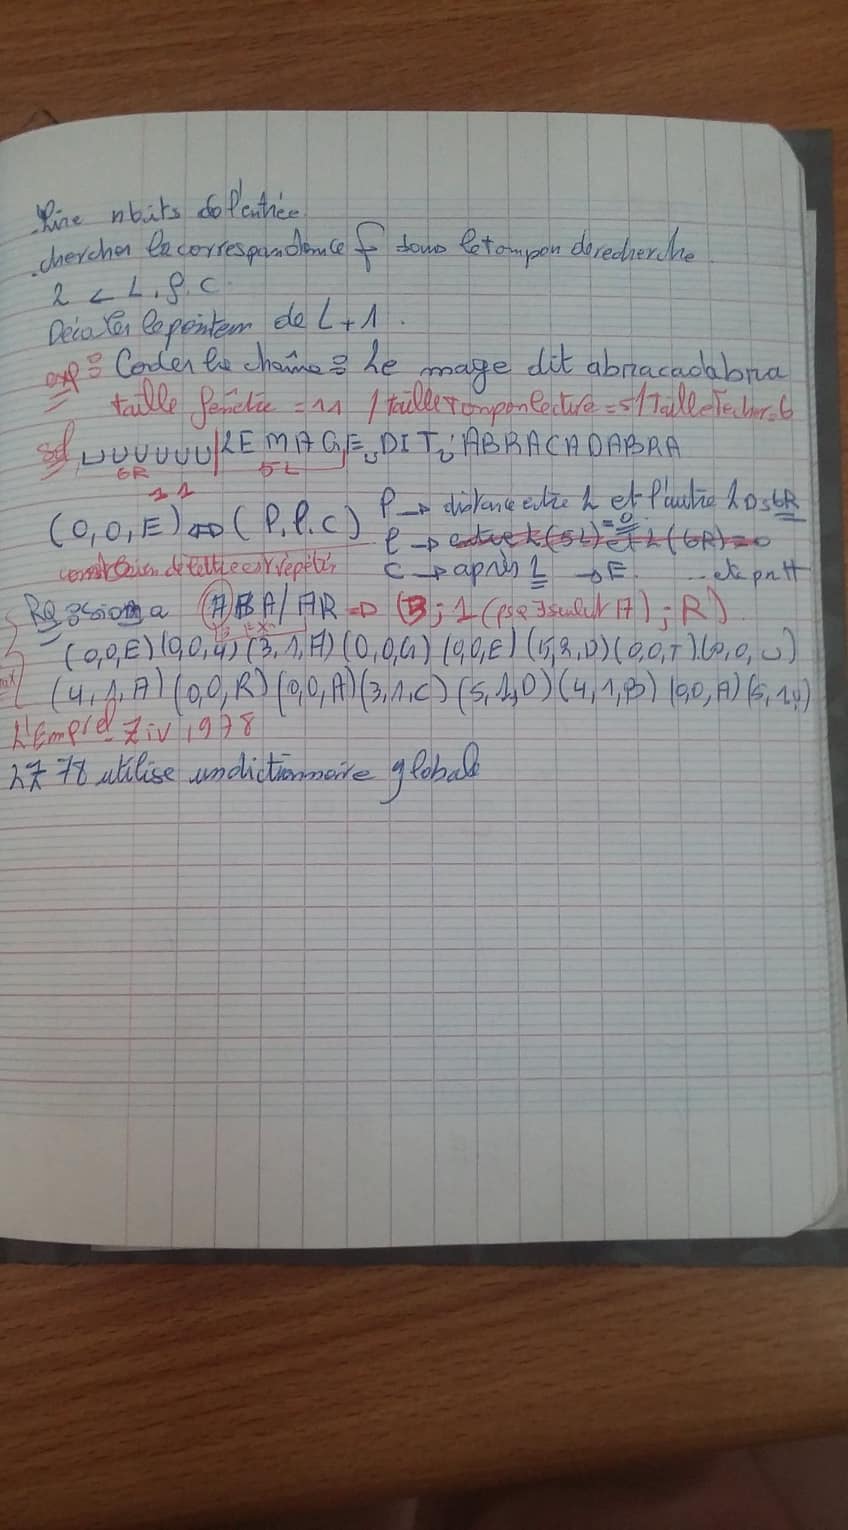 . Lire n bits de l'entrée
. chercher la correspondance f dans le tampon de recherche
2 < L, p, C.
Décaler le pointeur de L + 1.
exp : Coder la chaîne : Le mage dit abracadabra
taille fenêtre = 11 / taille tampon lecture = 5 / Taille Recher = 6
␣␣␣␣␣␣|LE MAGE␣DIT␣ABRACADABRA
6R 5L
11
(0,0,E) ⇔ (P, l, C) P → distance entre L et l'autre L Ds 6R
l → entre L (5L) et L (6R) = 0 = 0
C → après L → E
Rq si on a ABA/AR ⇒ (3 ; 1 (pse 1 seul A) ; R)
(0,0,E) (0,0,␣) (3,1,A) (0,0,G) (0,0,E) (5,2,D) (0,0,T) (0,0,␣)
(4,1,A) (0,0,R) (0,0,A) (3,1,C) (5,1,D) (4,1,B) (0,0,A)
Lempel Ziv 1978
LZ 78 utilise un dictionnaire global